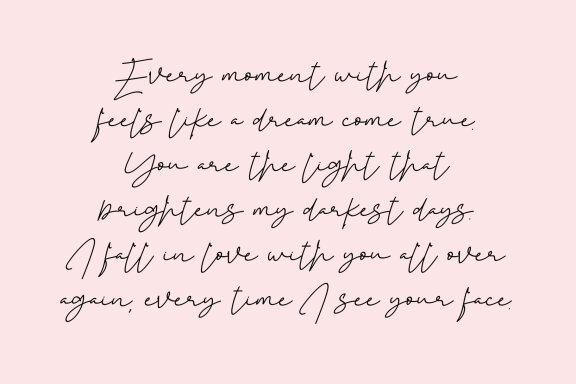 Every moment with you
feels like a dream come true.
You are the light that
brightens my darkest days.
I fall in love with you all over
again, every time I see your face.